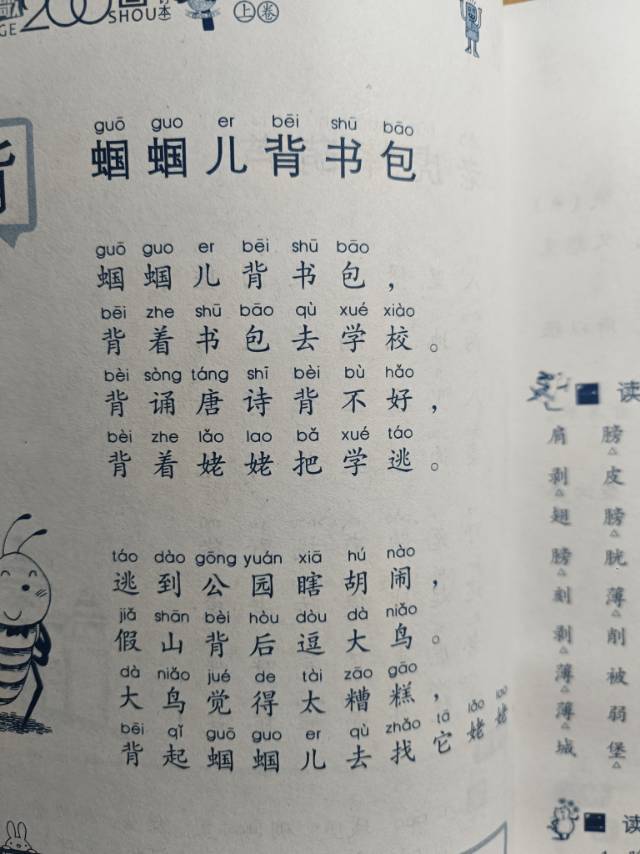 200
SHOU
上卷
guō guo er bēi shū bāo
蝈蝈儿背书包
guō guo er bēi shū bāo
蝈蝈儿背书包，
bēi zhe shū bāo qù xué xiào
背着书包去学校。
bèi sòng táng shī bèi bù hǎo
背诵唐诗背不好，
bèi zhe lǎo lao bǎ xué táo
背着姥姥把学逃。
táo dào gōng yuán xiā hú nào
逃到公园瞎胡闹，
jiǎ shān bèi hòu dòu dà niǎo
假山背后逗大鸟。
dà niǎo jué de tài zāo gāo
大鸟觉得太糟糕，
bēi qǐ guō guo er qù zhǎo tā lǎo lao
背起蝈蝈儿去找它姥姥
读
肩 膀
剥 皮
翅 膀
膀 胱
刻 薄
剥 削
薄 被
薄 弱
城 堡
读